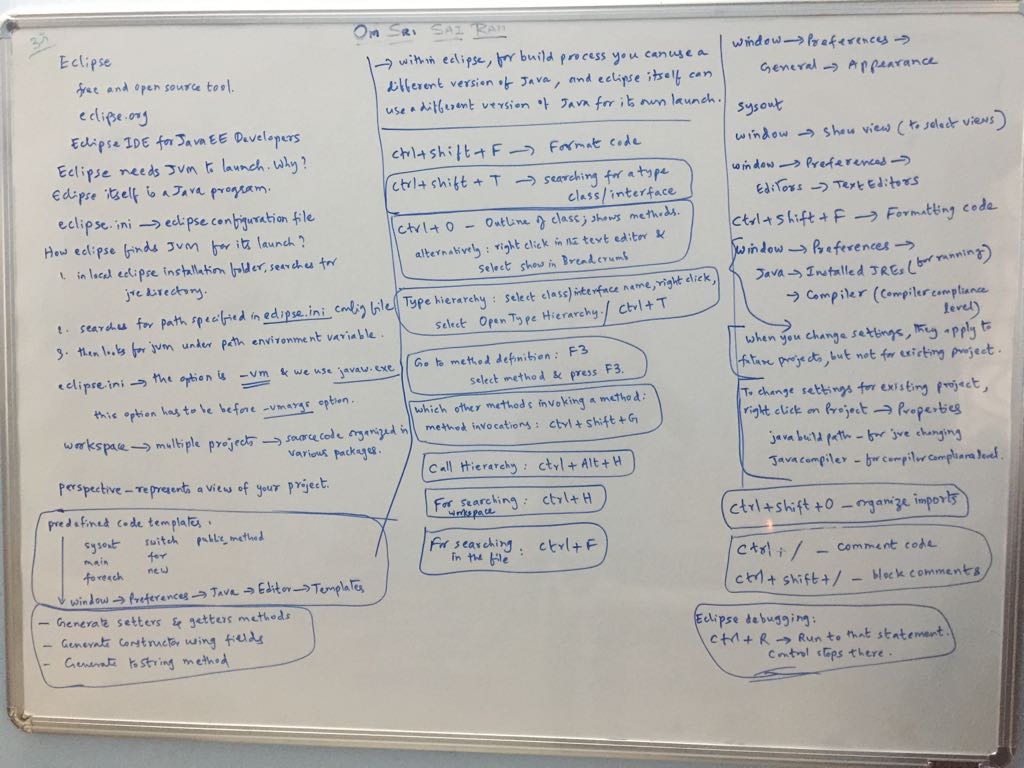 ૐ
OM SRI SAI RAM
Eclipse
free and open source tool.
eclipse.org
Eclipse IDE for Java EE Developers
Eclipse needs JVM to launch. Why?
Eclipse itself is a Java program.
eclipse.ini → eclipse configuration file
How eclipse finds JVM for its launch?
1. in local eclipse installation folder, searches for
jre directory.
2. searches for path specified in eclipse.ini config file
3. then looks for jvm under path environment variable.
eclipse.ini → the option is -vm & we use javaw.exe
this option has to be before -vmargs option.
workspace → multiple projects → source code organized in
various packages.
perspective – represents a view of your project.
predefined code templates.
sysout switch public_method
main for
foreach new
window → Preferences → Java → Editor → Templates
– Generate setters & getters methods
– Generate constructor using fields
– Generate toString method
→ within eclipse, for build process you can use a
different version of Java, and eclipse itself can
use a different version of Java for its own launch.
ctrl+shift+F → Format code
ctrl+shift+T → searching for a type
class/interface
ctrl+O – Outline of class; shows methods.
alternatively: right click in text editor &
select show in Breadcrumb
Type hierarchy: select class/interface name, right click,
select Open Type Hierarchy. / ctrl+T
Go to method definition: F3
select method & press F3.
which other methods invoking a method:
method invocations: ctrl+shift+G
Call Hierarchy: ctrl+Alt+H
For searching: ctrl+H
workspace
For searching : ctrl+F
in the file
window → Preferences →
General → Appearance
sysout
window → show view (to select views)
window → Preferences →
Editors → Text Editors
ctrl+shift+F → Formatting code
window → Preferences →
Java → Installed JREs (for running)
→ Compiler (Compiler compliance
level)
when you change settings, they apply to
future projects, but not for existing project.
To change settings for existing project,
right click on Project → Properties
java build path – for jre changing
Java compiler – for compiler compliance level.
ctrl+shift+O – organize imports
Ctrl + / – comment code
ctrl+shift+/ – block comments
Eclipse debugging:
ctrl+R → Run to that statement.
Control stops there.